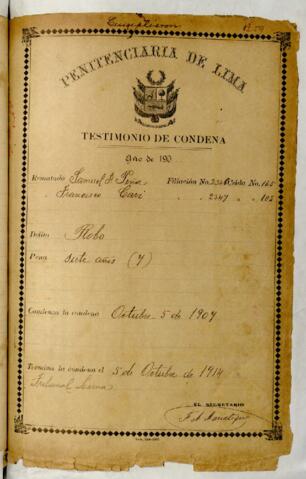 PENITENCIARIA DE LIMA
TESTIMONIO DE CONDENA
Año de 190
Rematado Samuel Filiación No. Celda No. 165
" Francisco Cari " 2347 " " 105
Delito Robo
Pena siete años (7)
Comienza la condena Octubre 5 de 1907
Termina la condena el 5 de Octubre de 1914
Tribunal
EL SECRETARIO